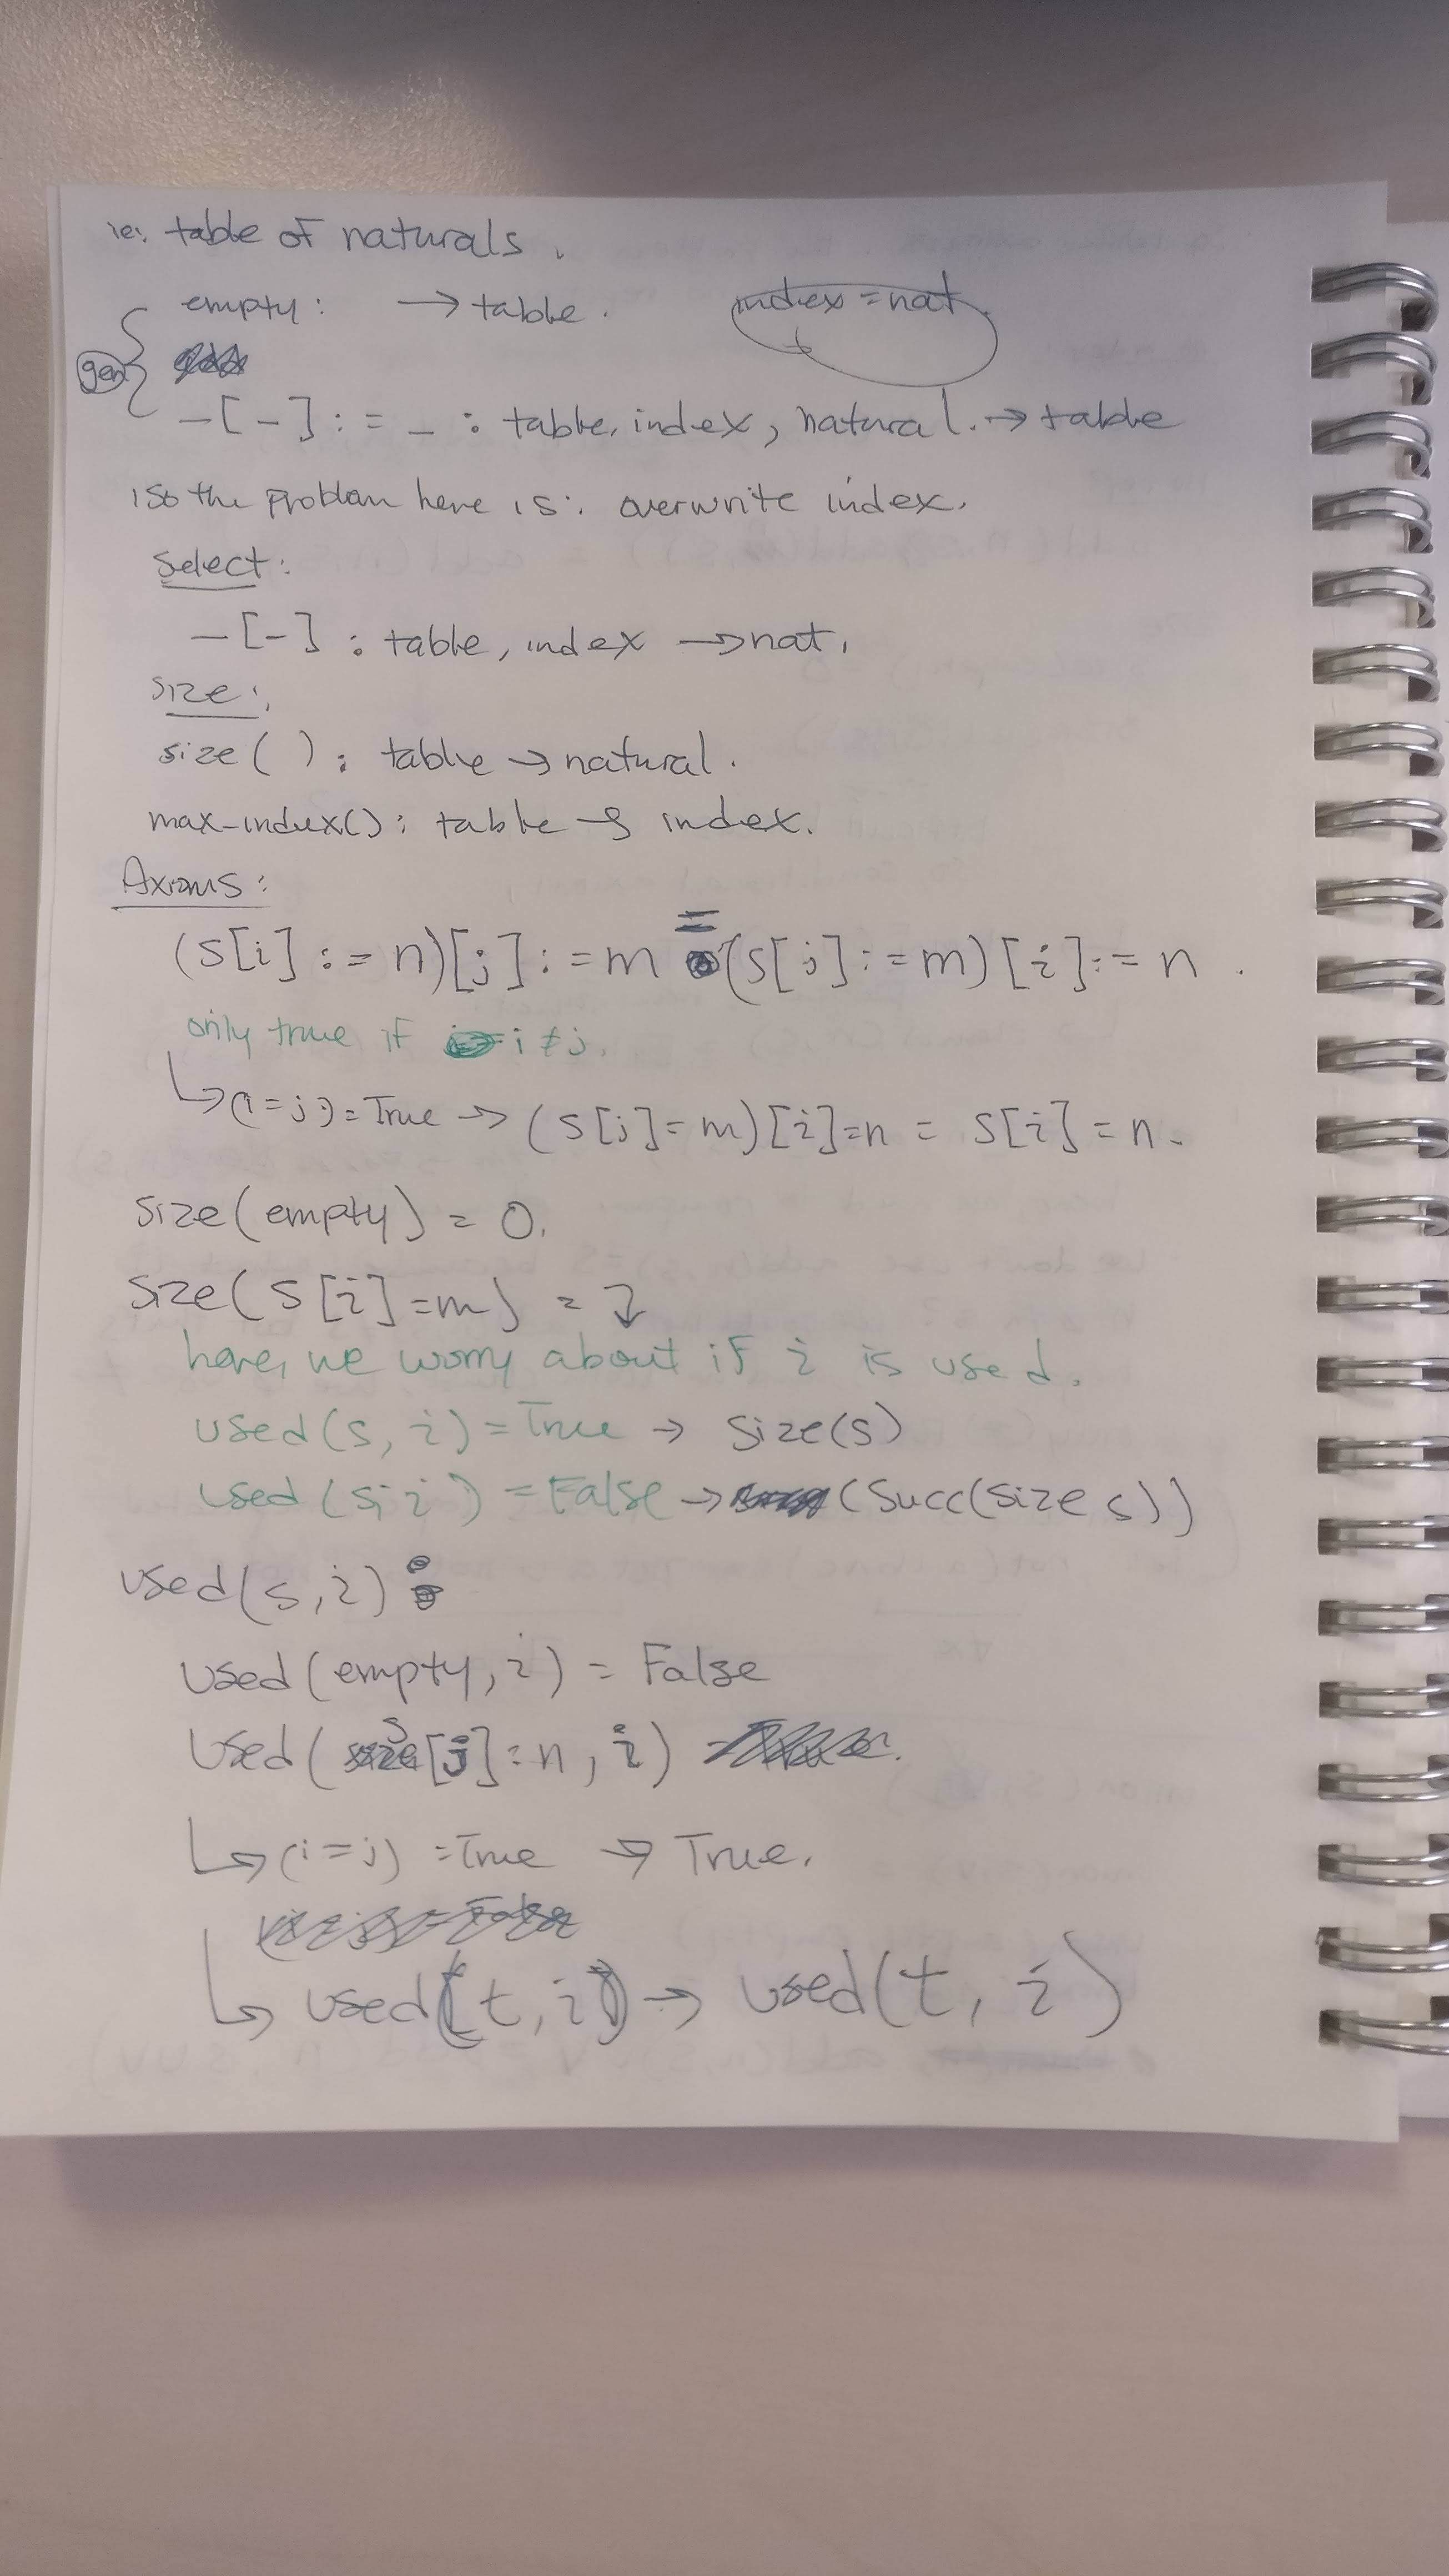 ie: table of naturals.
empty: → table. index = nat.
gen
_[_] := _ : table, index, natural. → table
so the problem here is: overwrite index.
Select:
_[_] : table, index → nat.
size:
size( ) : table → natural.
max-index(): table → index.
Axioms:
(s[i] := n)[j] := m = (s[j] := m)[i] := n.
only true if i ≠ j.
↳ (i=j) = True → (s[j]=m)[i]=n = s[i]=n.
size(empty) = 0.
size(s[i]=m) = ↴
here, we worry about if i is used.
used(s, i) = True → size(s)
used(s, i) = False → (succ(size s))
used(s, i) :
used(empty, i) = False
used(s[j]=n, i)
↳ (i=j) = True → True.
↳ used(t, i) → used(t, i)